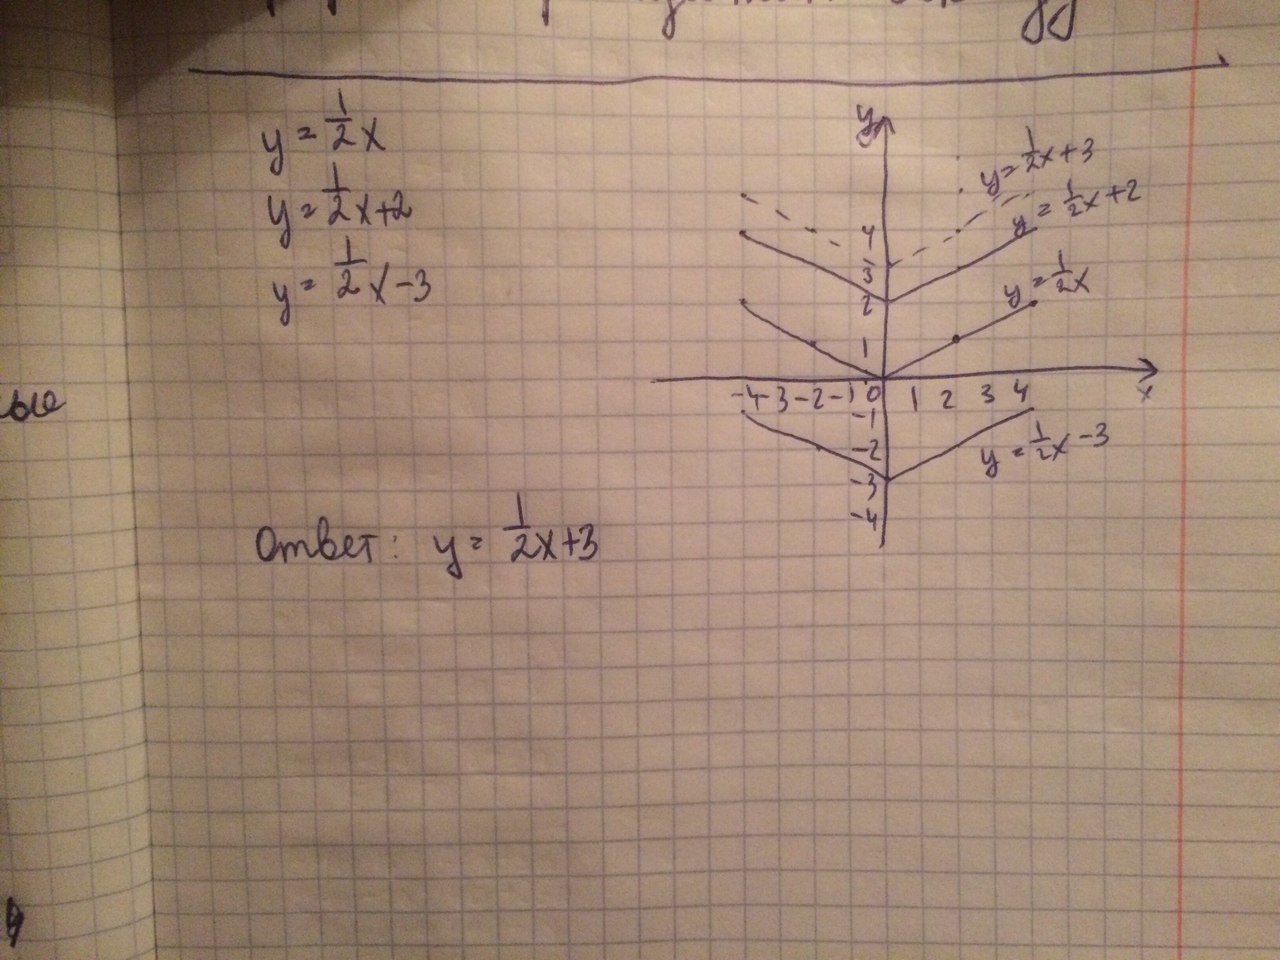 y = 1/2 x
y = 1/2 x+2
y = 1/2 x-3
y
y = 1/2 x + 3
y = 1/2 x + 2
4
3
y = 1/2 x
2
1
-4 -3 -2 -1 0 1 2 3 4 x
-1
-2
y = 1/2 x - 3
-3
-4
ые
Ответ: y = 1/2 x+3